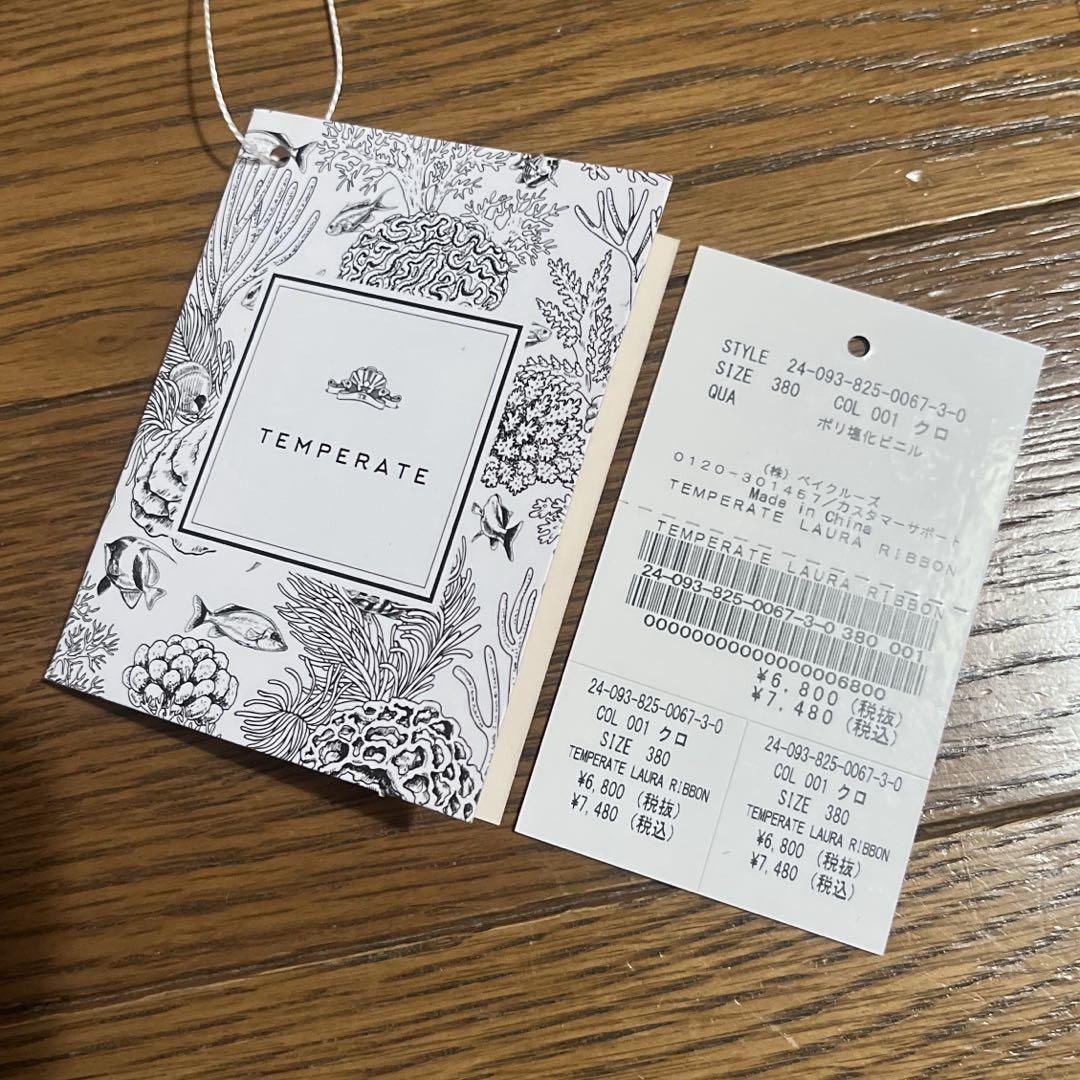 TEMPERATE
STYLE 24-093-825-0067-3-0
SIZE 380 COL 001 クロ
QUA ポリ塩化ビニル
(株) ベイクルーズ
0120-301457/カスタマーサポート
Made in China
TEMPERATE LAURA RIBBON
TEMPERATE LAURA RIBBON
24-093-825-0067-3-0 380 001
0000000000000006800
¥6,800 (税抜)
¥7,480 (税込)
24-093-825-0067-3-0
COL 001 クロ
SIZE 380
TEMPERATE LAURA RIBBON
¥6,800 (税抜)
¥7,480 (税込)
24-093-825-0067-3-0
COL 001 クロ
SIZE 380
TEMPERATE LAURA RIBBON
¥6,800 (税抜)
¥7,480 (税込)